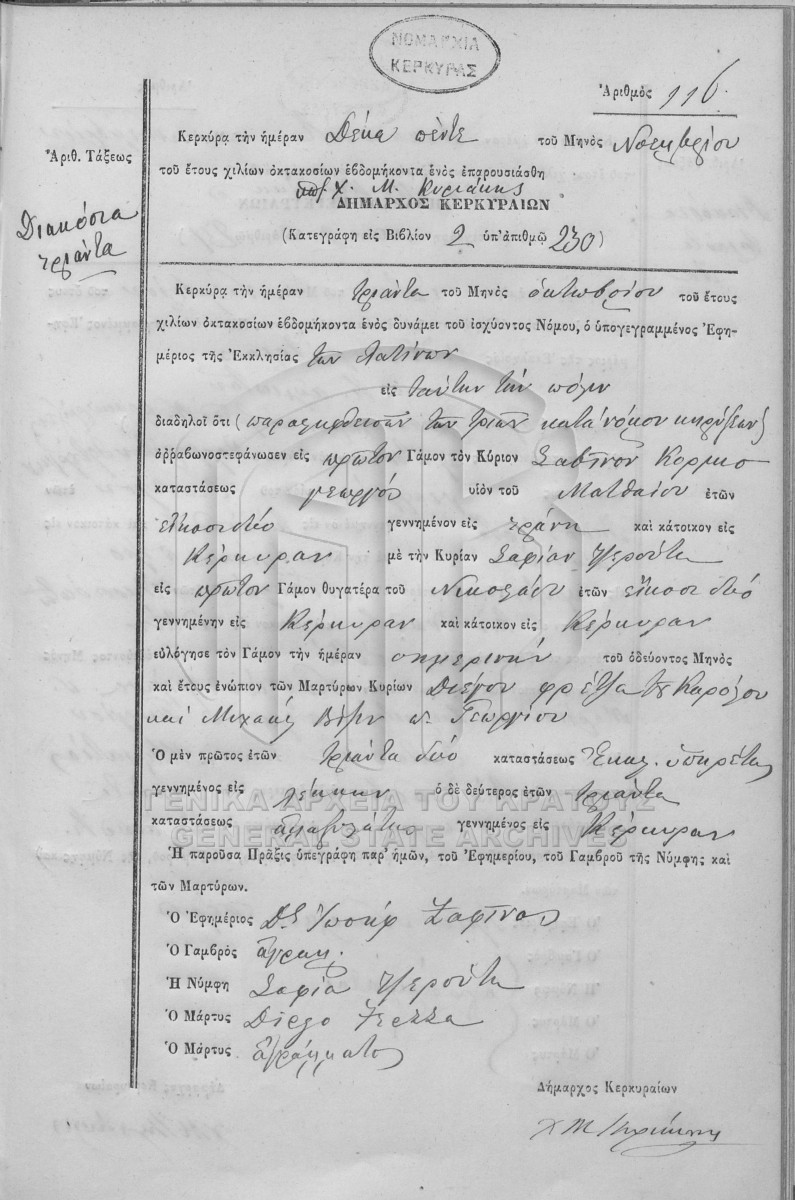 ΝΟΜΑΡΧΙΑ
ΚΕΡΚΥΡΑΣ
Ἀριθμὸς 116
Ἀριθ. Τάξεως
Διακόσια
τριάντα
Κερκύρα τὴν ἡμέραν Δέκα πέντε τοῦ Μηνὸς Νοεμβρίου
τοῦ ἔτους χιλίων ὀκτακοσίων ἑβδομήκοντα ἑνὸς ἐπαρουσιάσθη
Χ. Μ. Κυριάκης
ΔΗΜΑΡΧΟΣ ΚΕΡΚΥΡΑΙΩΝ
(Κατεγράφη εἰς Βιβλίον 2 ὑπ' ἀριθμῷ 230)
Κερκύρα τὴν ἡμέραν τριάντα τοῦ Μηνὸς ὀκτωβρίου τοῦ ἔτους
χιλίων ὀκτακοσίων ἑβδομήκοντα ἑνὸς δυνάμει τοῦ ἰσχύοντος Νόμου, ὁ ὑπογεγραμμένος Ἐφη-
μέριος τῆς Ἐκκλησίας τῶν Λατίνων
εἰς ταύτην τὴν πόλιν
διαδηλοῖ ὅτι (παραλειφθεισῶν τῶν τριῶν κατὰ νόμον κηρύξεων)
ἀῤῥαβωνοστεφάνωσεν εἰς πρῶτον Γάμον τὸν Κύριον Σαβῖνον Κορμιο
καταστάσεως γεωργός υἱὸν τοῦ Ματθαίου ἐτῶν
εἴκοσι δύο γεννημένον εἰς τράνη καὶ κάτοικον εἰς
Κέρκυραν μὲ τὴν Κυρίαν Σοφίαν Ψερούτη
εἰς πρῶτον Γάμον θυγατέρα τοῦ Νικολάου ἐτῶν εἴκοσι δύο
γεννημένην εἰς Κέρκυραν καὶ κάτοικον εἰς Κέρκυραν
εὐλόγησε τὸν Γάμον τὴν ἡμέραν σημερινήν τοῦ ὁδεύοντος Μηνὸς
καὶ ἔτους ἐνώπιον τῶν Μαρτύρων Κυρίων Διέγου φρέτζα τοῦ Καρόλου
καὶ Μιχαήλ Γεωργίου
Ὁ μὲν πρῶτος ἐτῶν τριάντα δύο καταστάσεως ὑπηρέτης
γεννημένος εἰς λέκκην ὁ δὲ δεύτερος ἐτῶν τριάντα
καταστάσεως ἁμαξηλάτης γεννημένος εἰς Κέρκυραν
ΓΕΝΙΚΑ ΑΡΧΕΙΑ ΤΟΥ ΚΡΑΤΟΥΣ
GENERAL STATE ARCHIVES
Ἡ παροῦσα Πράξις ὑπεγράφη παρ' ἡμῶν, τοῦ Ἐφημερίου, τοῦ Γαμβροῦ τῆς Νύμφης καὶ
τῶν Μαρτύρων.
Ὁ Ἐφημέριος Ἰωσήφ Ζαφῖνος
Ὁ Γαμβρὸς ἀγραμ.
Ἡ Νύμφη Σοφία Ψερούτη
Ὁ Μάρτυς Diego Frezza
Ὁ Μάρτυς ἀγράμματος
Δήμαρχος Κερκυραίων
Χ Μ Κυριάκης